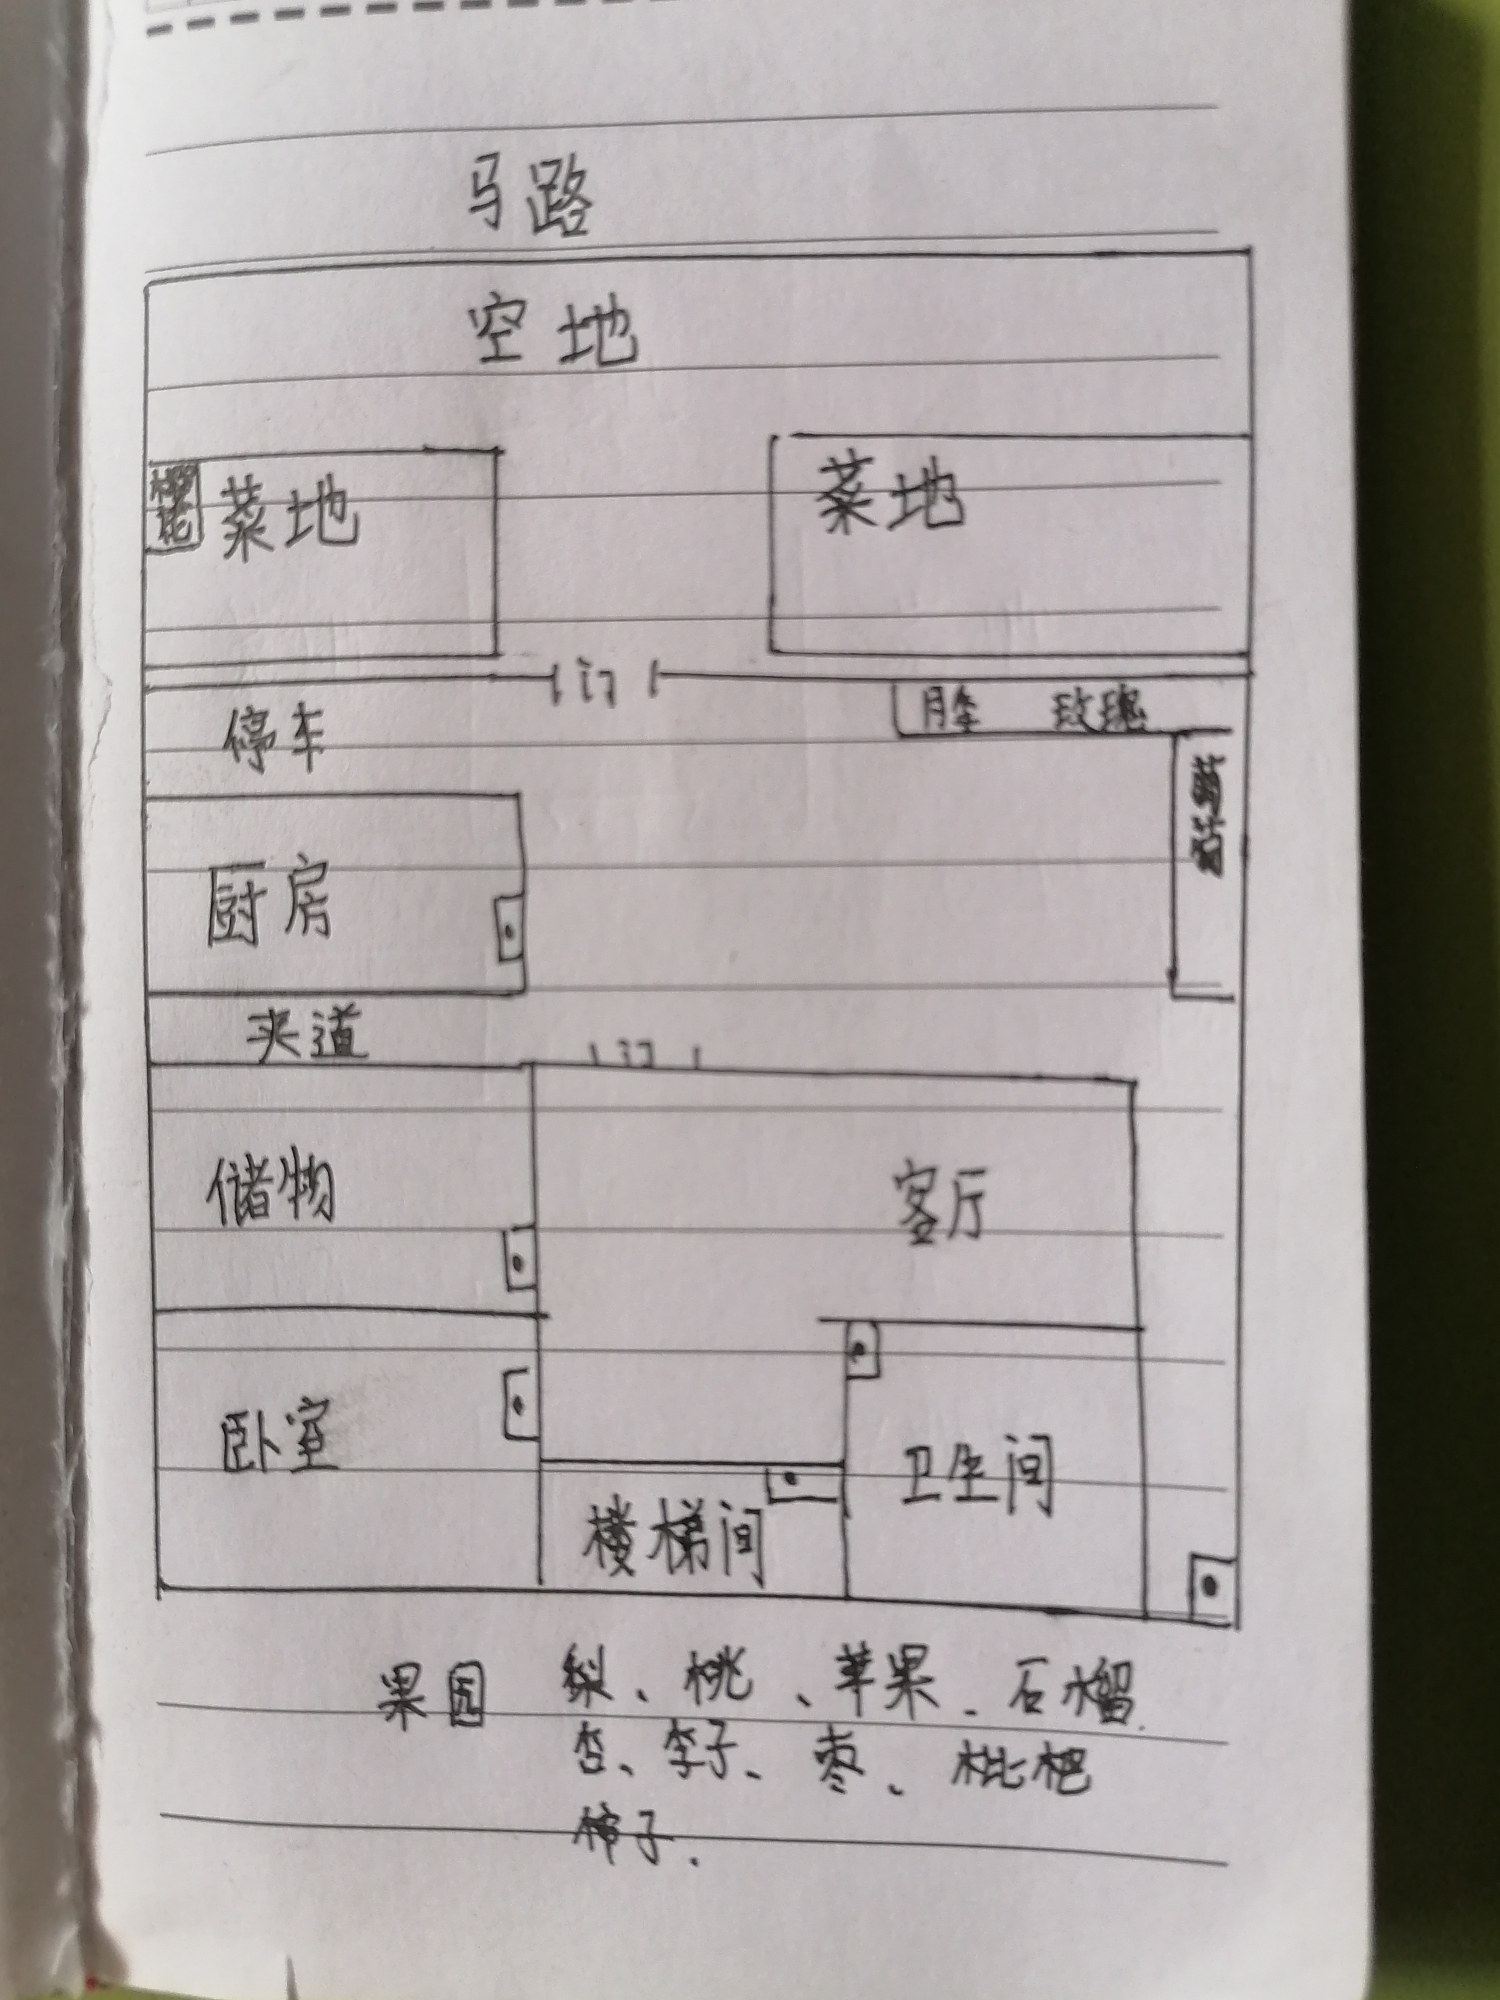 马路
空地
樱花
菜地
菜地
门
停车
月季 玫瑰
厨房
夹道
门
储物
客厅
卧室
卫生间
楼梯间
果园 梨、桃、苹果、石榴
杏、李子、枣、枇杷
柿子.